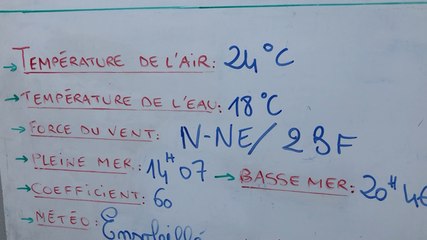 → TEMPÉRATURE DE L'AIR: 24°C
→ TEMPÉRATURE DE L'EAU: 18°C
→ FORCE DU VENT: N-NE/2BF
→ PLEINE MER: 14H07 → BASSE MER: 20H
→ COEFFICIENT: 60
→ MÉTÉO: Ensoleillé